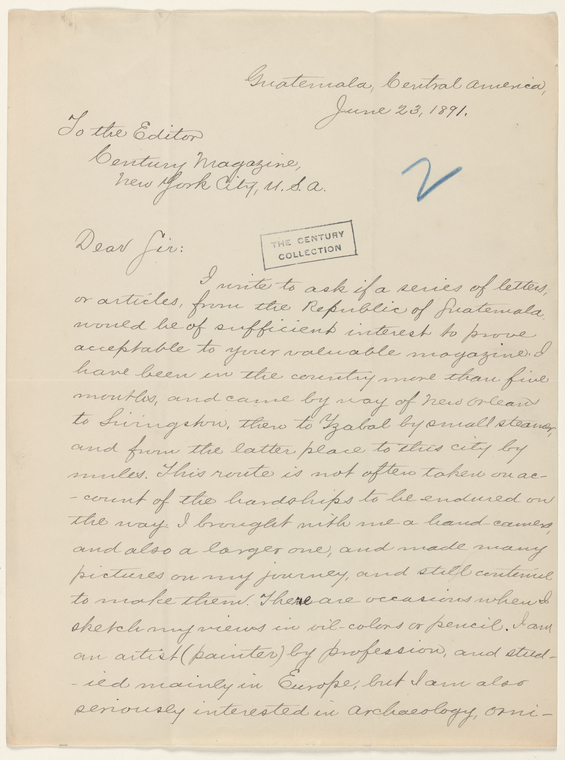 Guatemala, Central America,
June 23, 1891.
To the Editor
Century Magazine,
New York City, U.S.A.
2
Dear Sir:
THE CENTURY
COLLECTION
I write to ask if a series of letters,
or articles, from the Republic of Guatemala
would be of sufficient interest to prove
acceptable to your valuable magazine. I
have been in the country more than five
months, and came by way of New Orleans
to Livingston, then to Yzabal by small steamer,
and from the latter place to this city by
mules. This route is not often taken on ac-
-count of the hardships to be endured on
the way. I brought with me a hand-camera,
and also a larger one, and made many
pictures on my journey, and still continue
to make them. There are occasions when I
sketch my views in oil-colors or pencil. I am
an artist (painter) by profession, and stud-
-ied mainly in Europe; but I am also
seriously interested in archaeology, orni-